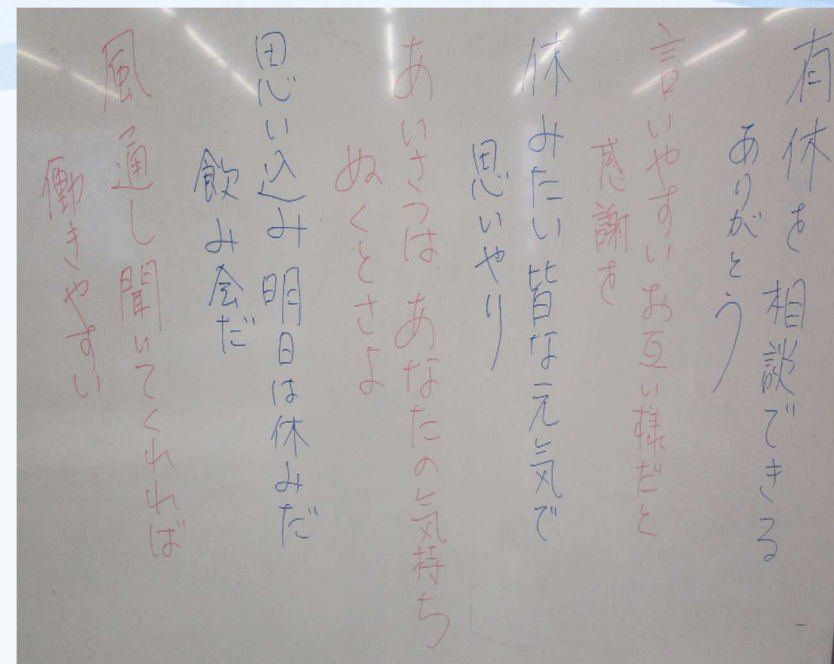 有休を相談できる
ありがとう
言いやすいお互い様だと
感謝を
休みたい皆な元気で
思いやり
あいさつは あなたの気持ち
ぬくとさよ
思い込み 明日は休みだ
飲み会だ
風通し聞いてくれれば
働きやすい